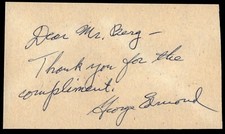 Dear Mr. Berg –
Thank you for the
compliment.
George Esmond